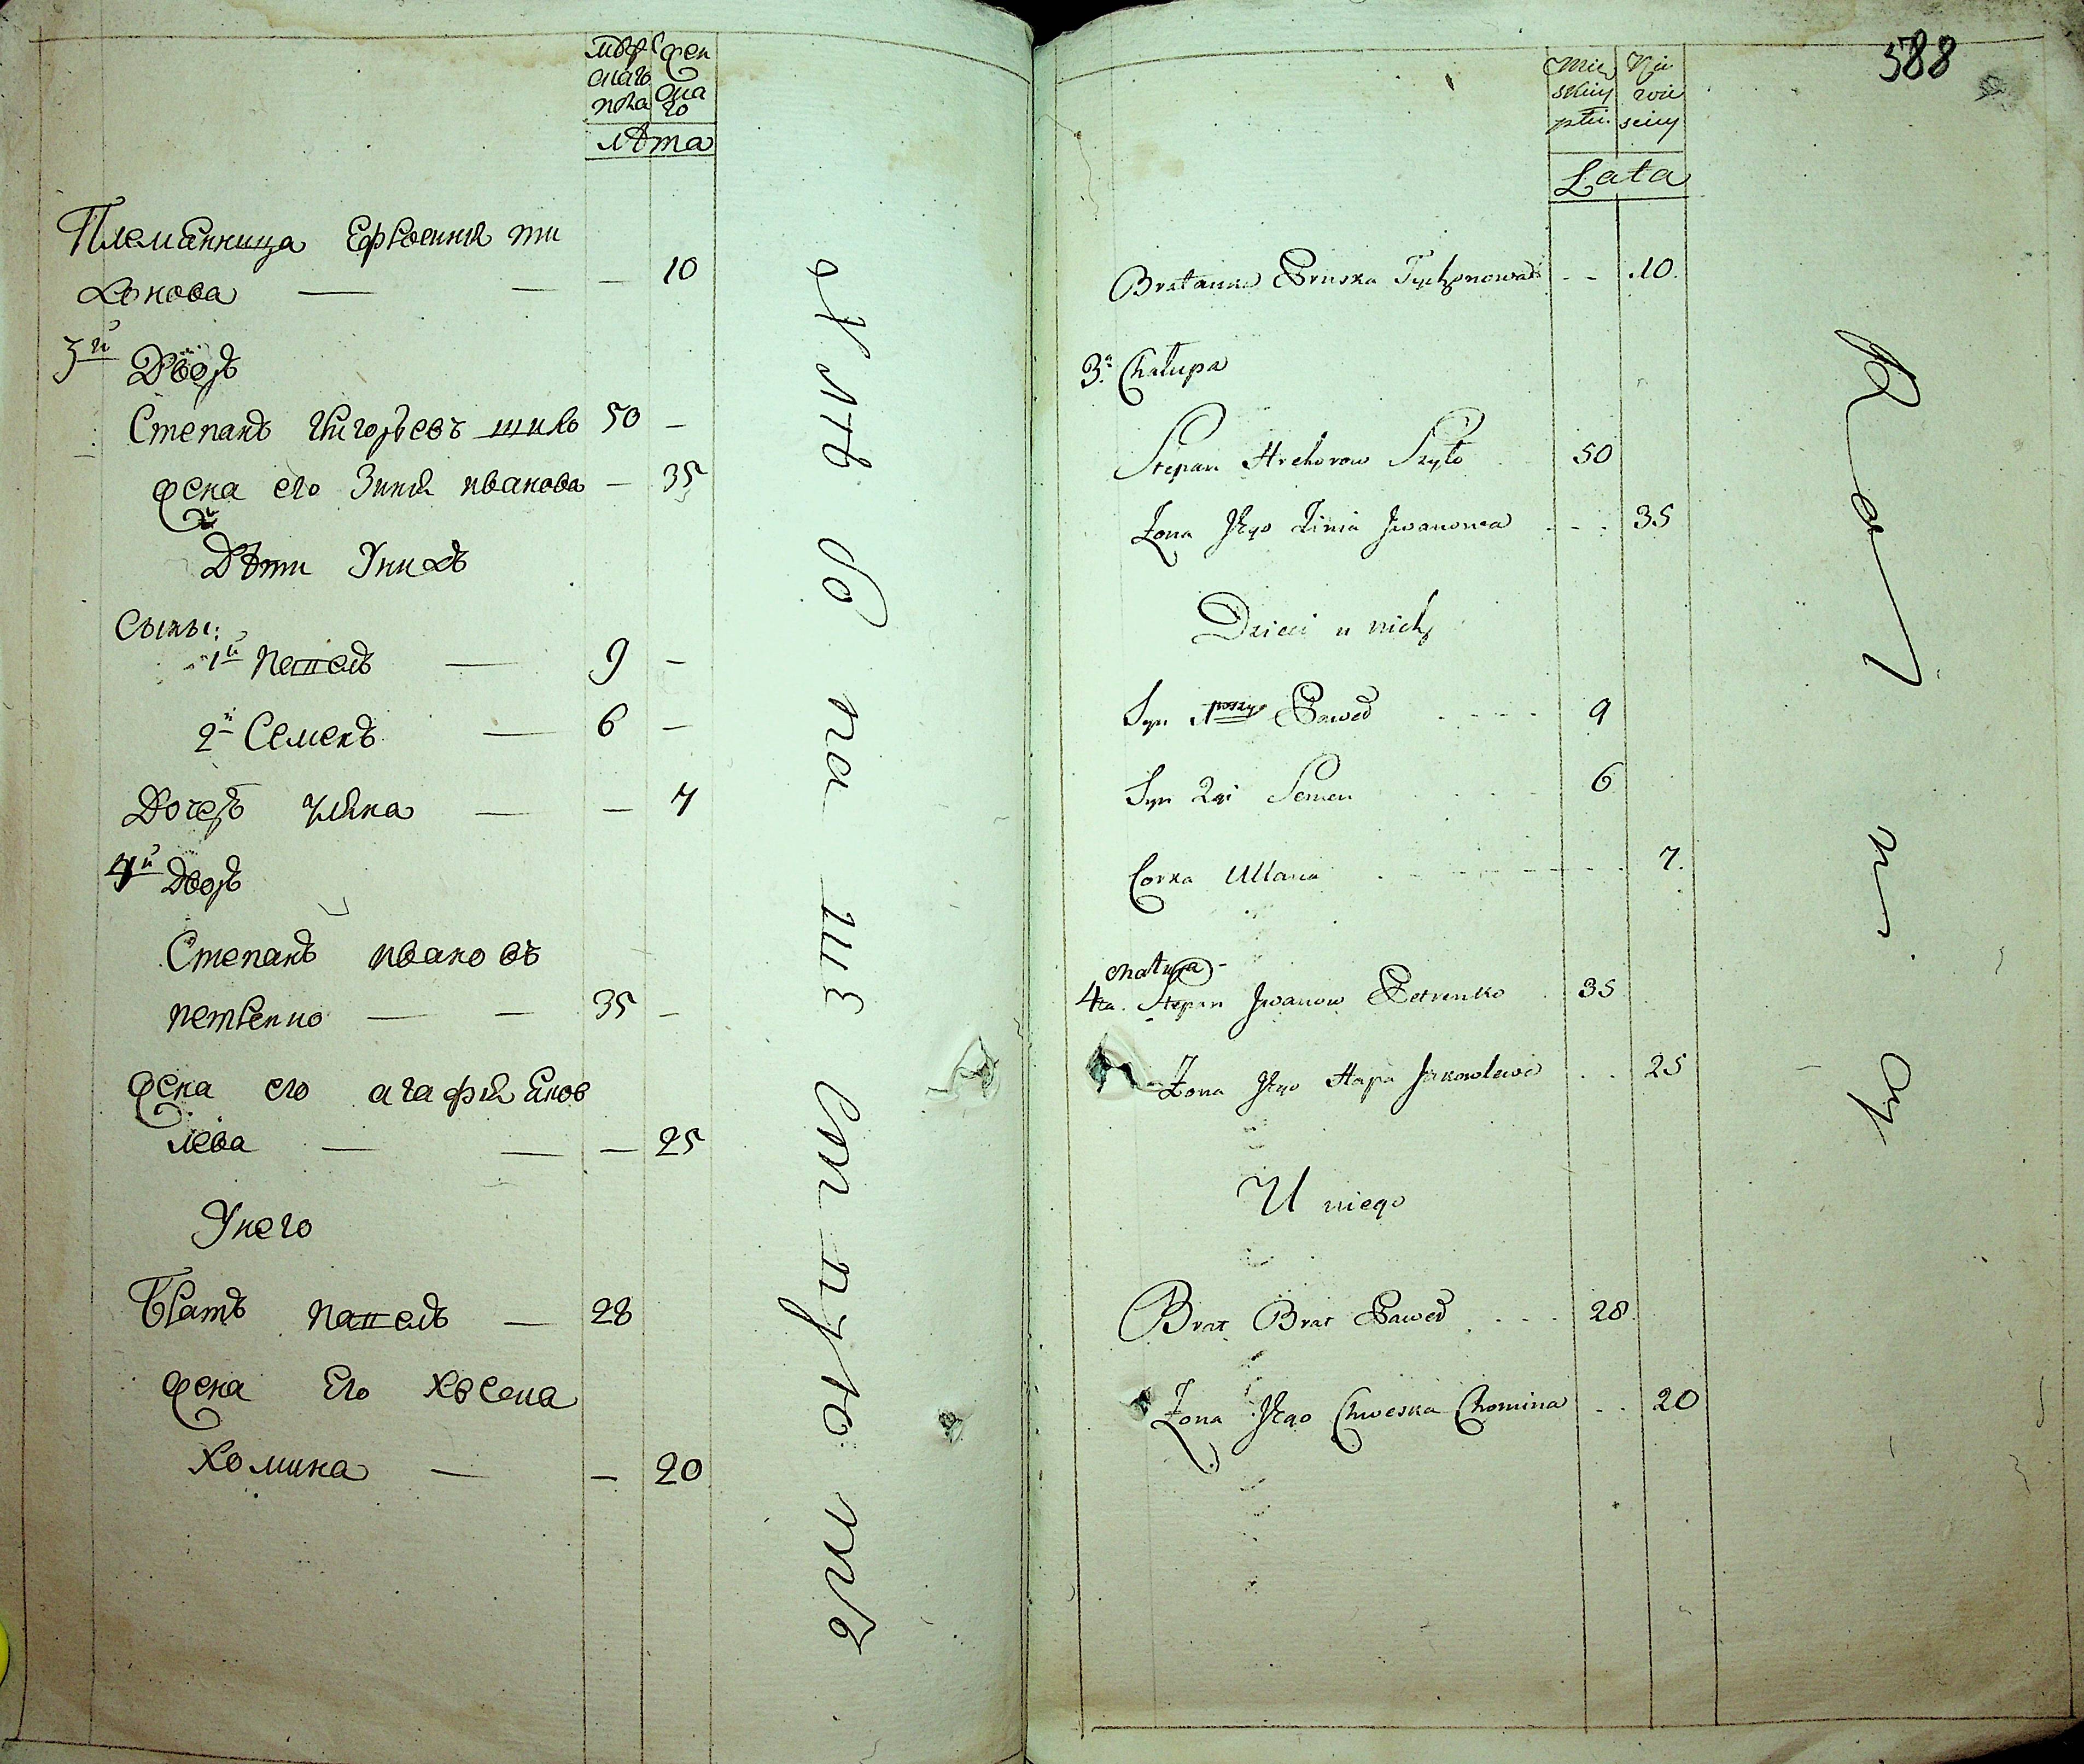 мужескаго пола
женскаго
лѣта
Племянница Ефросиния ти
хонова — — — 10
3й Дворъ
Степанъ Григорьевъ шило 50 —
жена его Зиния ивановa — 35
Дѣти у нихъ
Сыны:
1й павелъ — 9 —
2й Семенъ — 6 —
Дочерь уляна — — 7
4й Дворъ
Степанъ ивановъ
петренко — — 35 —
жена его агафия яков
лева — — — 25
У него
Братъ павелъ — 28
жена Его Хвеска
Хомина — — 20
588
Lata
Bratanna Pruska Tychonowa - - 10.
3a Chałupa
Stepan Hrehorow Szyło 50
Żona Jego Zinia Jwanowa - - . 35
Dzieci u nich
Syn 1wszy Paweł - - - - 9
Syn 2gi Semen - - - - 6
Corka Ullana - - - - 7.
chałupa -
4ta. Stepan Jwanow Petrenko 35
Żona Jego Hapa Jakowlewa . . 25
U niego
Brat Brat Paweł . . . . 28.
Żona Jego Chweska Chomina . . 20